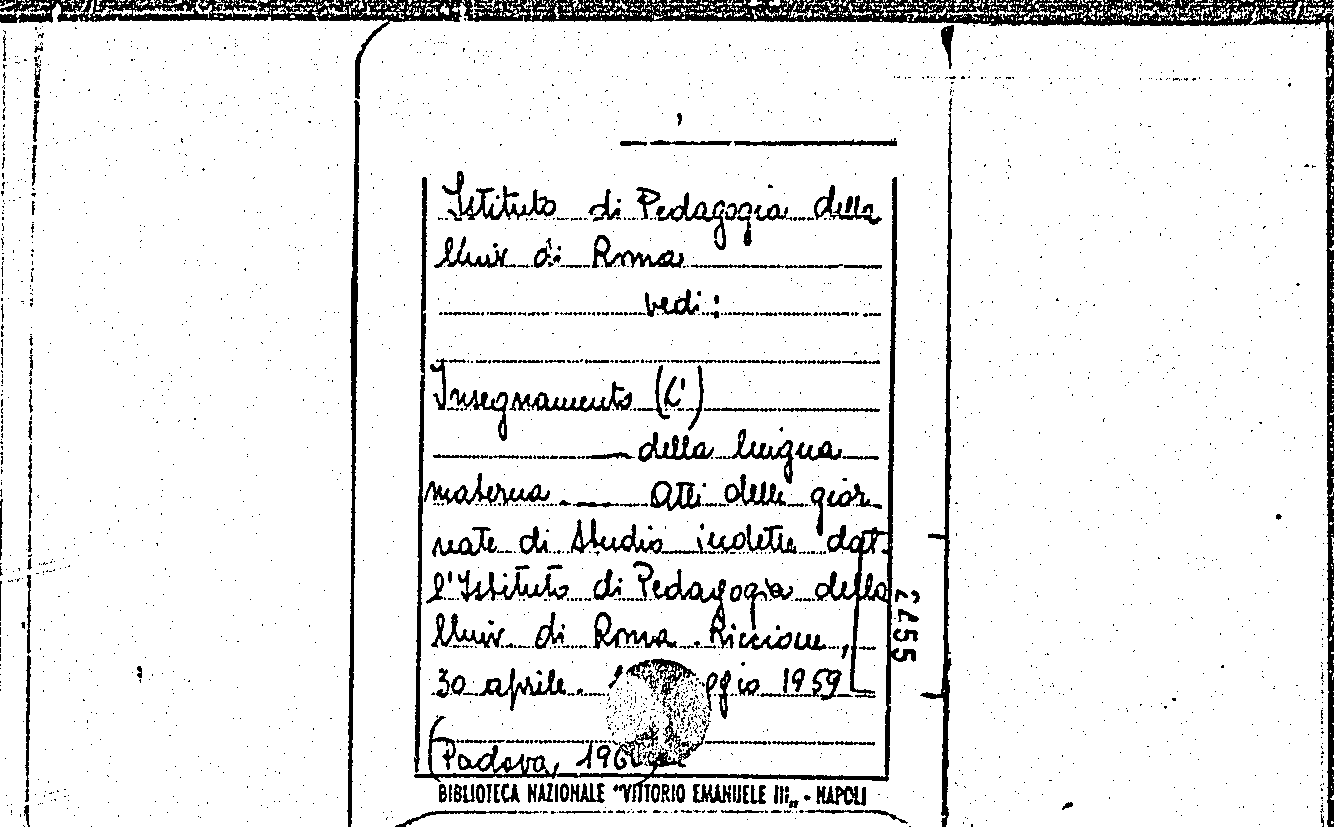 Istituto di Pedagogia della
Univ di Roma
vedi:
Insegnamento (L')
della lingua
materna. Atti delle gior-
nate di Studio indette dal-
l'Istituto di Pedagogia della
Univ. di Roma. Riccione,
30 aprile. 1959
(Padova,
BIBLIOTECA NAZIONALE "VITTORIO EMANUELE III„ - NAPOLI
2455